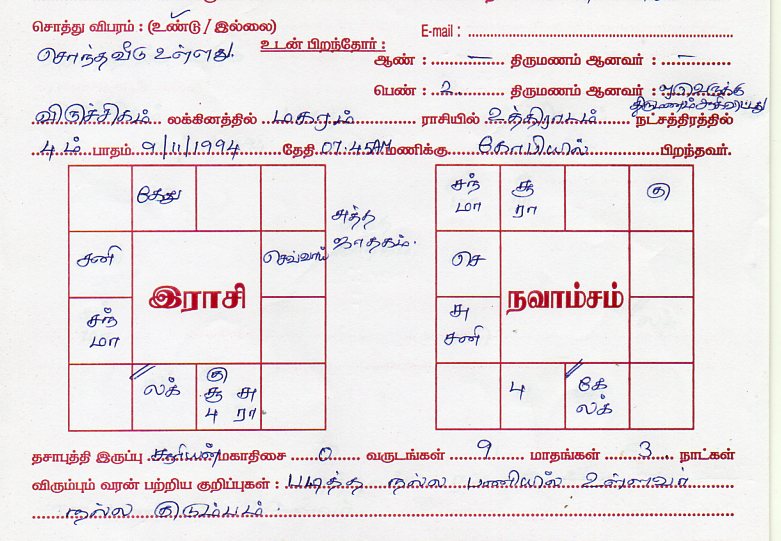 சொத்து விபரம் : (உண்டு / இல்லை) E-mail :
சொந்த வீடு உள்ளது. உடன் பிறந்தோர் :
ஆண் : – திருமணம் ஆனவர் : –
பெண் : 2 திருமணம் ஆனவர் : ஒருவருக்கு
திருமணம் ஆகிவிட்டது
விருச்சிகம் லக்கினத்தில் மகரம் ராசியில் உத்திராடம் நட்சத்திரத்தில்
4ம் பாதம் 9/11/1994 தேதி 07.45AM மணிக்கு கோபியில் பிறந்தவர்.
கேது
சனி
செவ்வாய்
சந்
மா
லக்
குரு
சூ சு
4 ரா
இராசி
சுத்த
ஜாதகம்.
சந்
மா
சூ
ரா
குரு
செ
சு
சனி
4
கே
லக்
நவாம்சம்
தசாபுத்தி இருப்பு சூரியன் மகாதிசை 0 வருடங்கள் 9 மாதங்கள் 3 நாட்கள்
விரும்பும் வரன் பற்றிய குறிப்புகள் : படித்த நல்ல பணியில் உள்ளவர்
நல்ல குடும்பம்.